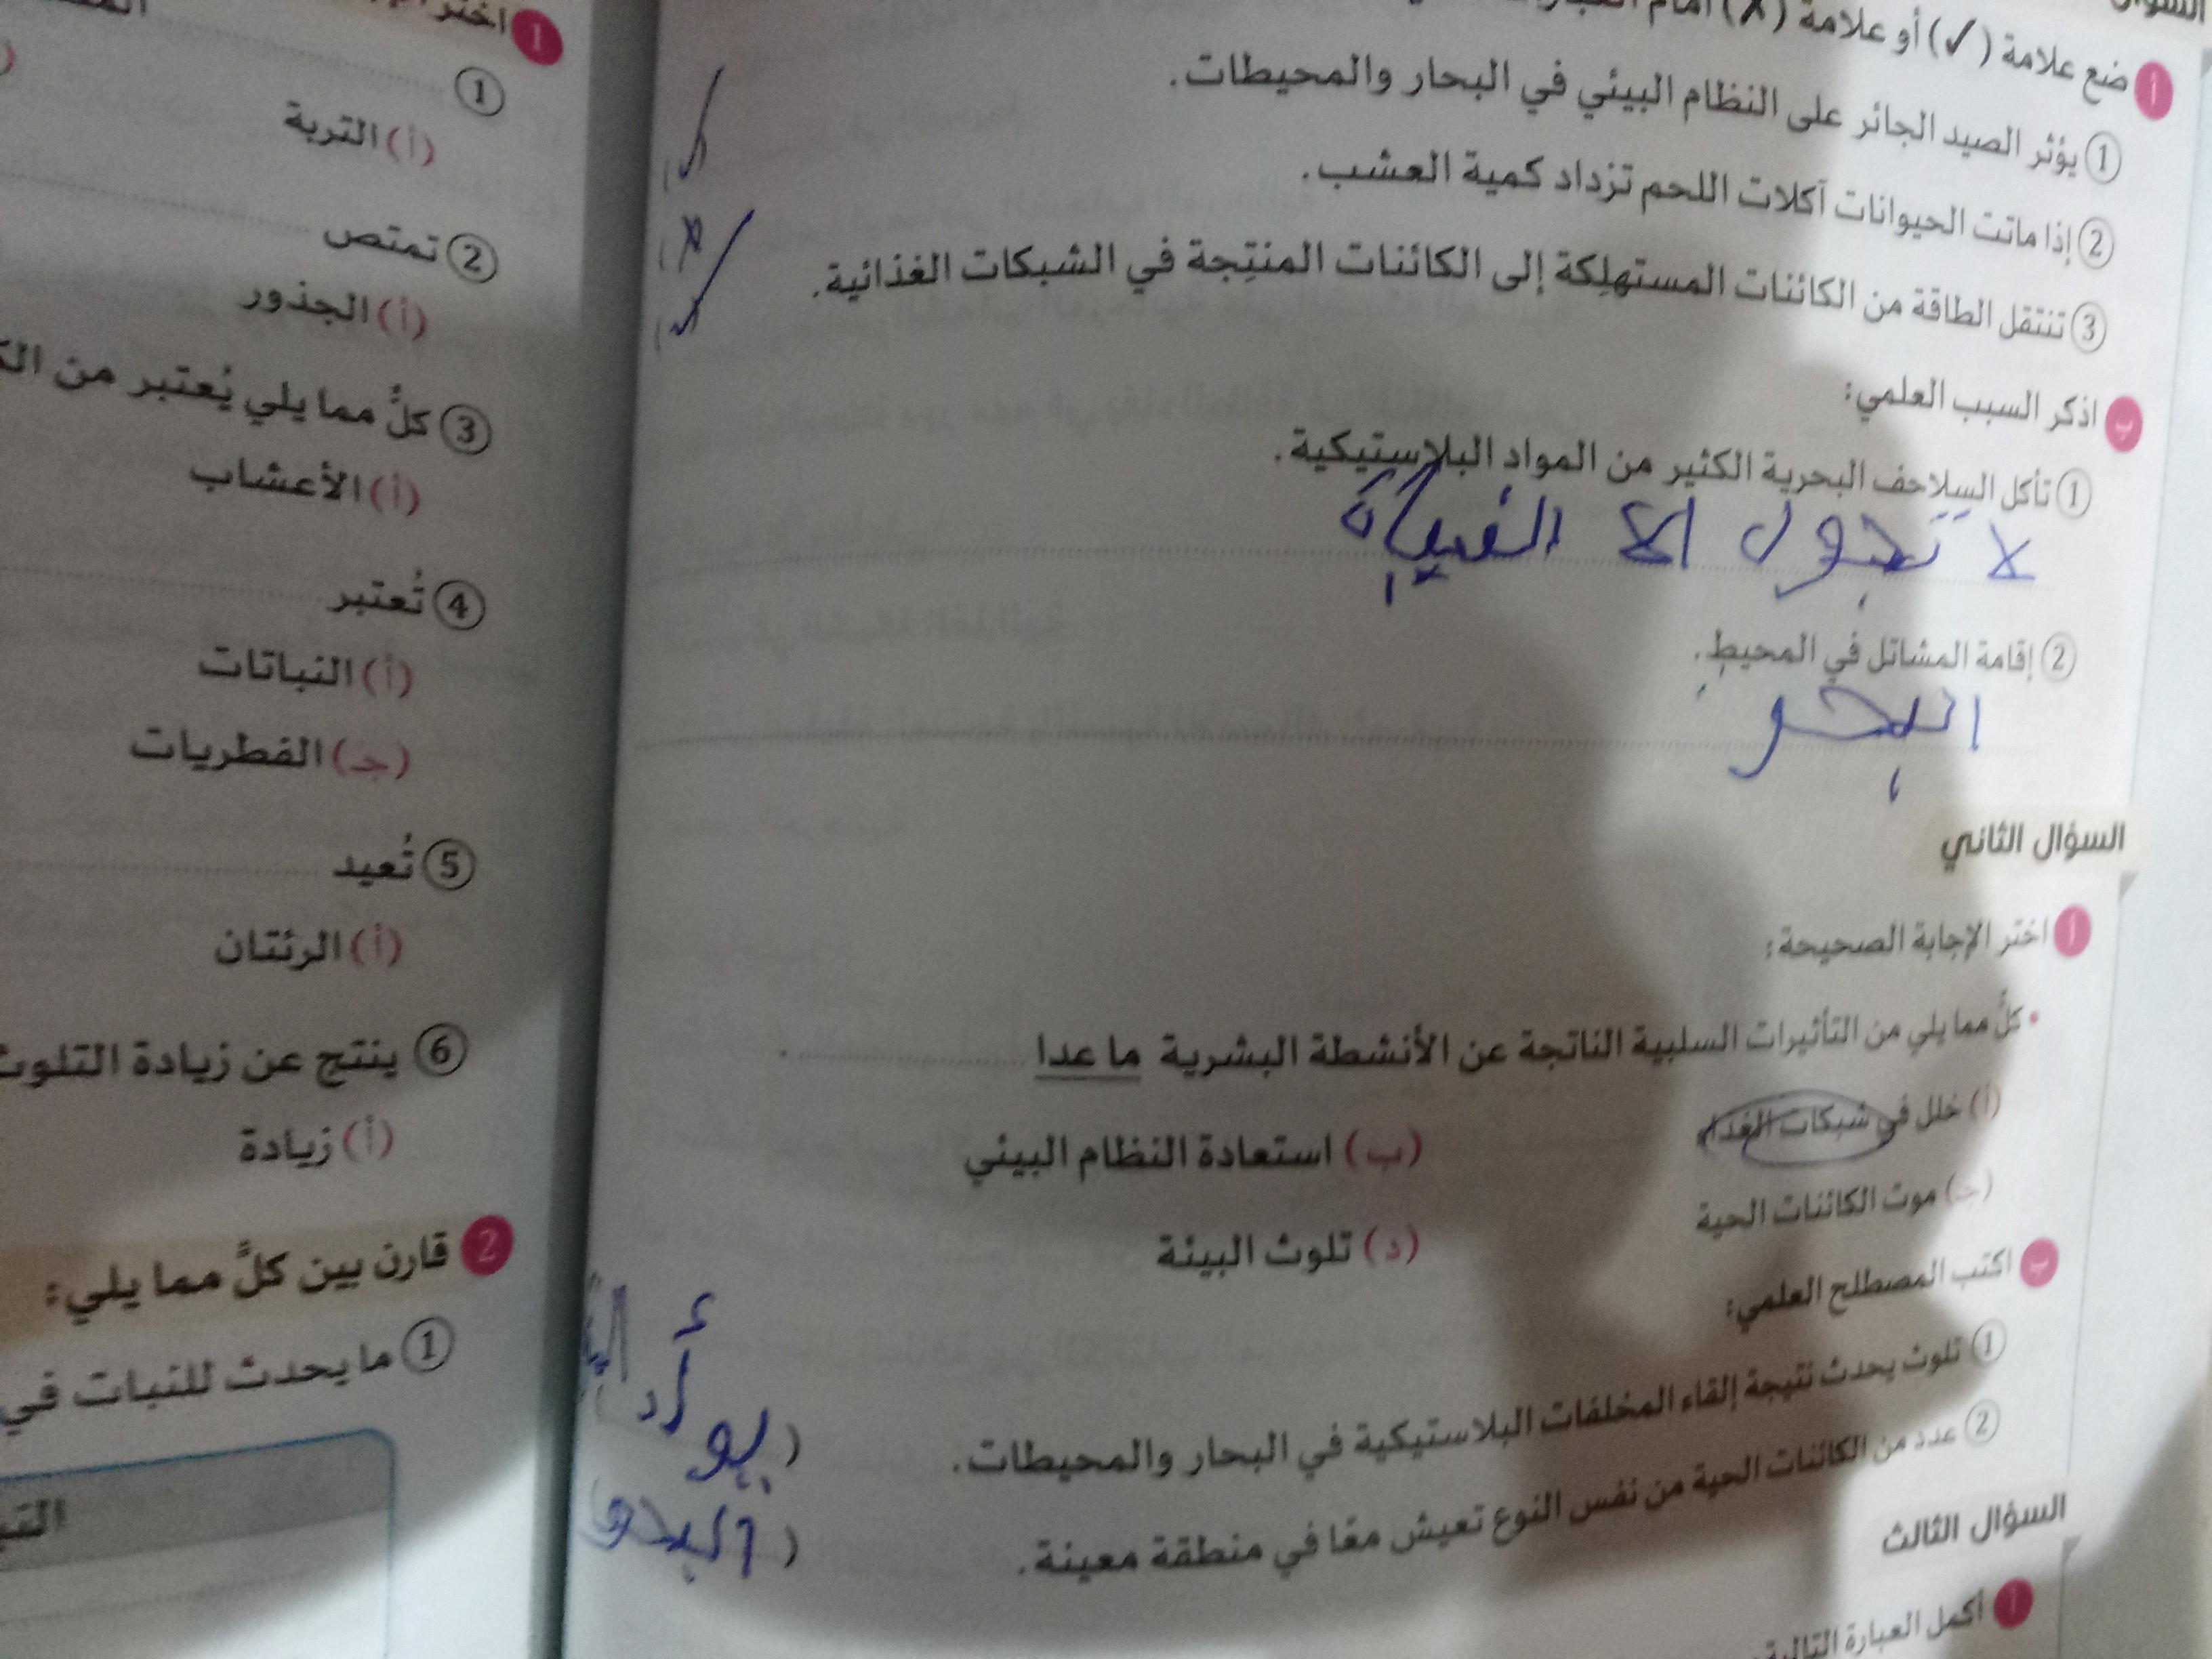 ضع علامة (✓) أو علامة (✗) أمام
① يؤثر الصيد الجائر على النظام البيئي في البحار والمحيطات.
② إذا ماتت الحيوانات آكلات اللحم تزداد كمية العشب.
③ تنتقل الطاقة من الكائنات المستهلِكة إلى الكائنات المنتِجة في الشبكات الغذائية.
ب اذكر السبب العلمي:
① تأكل السلاحف البحرية الكثير من المواد البلاستيكية.
لا
② إقامة المشاتل في المحيط.
البحر
السؤال الثاني
أ اختر الإجابة الصحيحة:
• كلٌّ مما يلي من التأثيرات السلبية الناتجة عن الأنشطة البشرية ما عدا
(أ) خلل في شبكات الغذاء
(ب) استعادة النظام البيئي
(جـ) موت الكائنات الحية
(د) تلوث البيئة
ب اكتب المصطلح العلمي:
① تلوث يحدث نتيجة إلقاء المخلفات البلاستيكية في البحار والمحيطات. (
② عدد من الكائنات الحية من نفس النوع تعيش معًا في منطقة معينة. (
السؤال الثالث
أ أكمل العبارة التالية
1 اختر
①
(أ) التربة
② تمتص
(أ) الجذور
③ كلٌّ مما يلي يُعتبر من
(أ) الأعشاب
④ تُعتبر
(أ) النباتات
(جـ) الفطريات
⑤ تُعيد
(أ) الرئتان
⑥ ينتج عن زيادة التلوث
(أ) زيادة
2 قارن بين كلٍّ مما يلي:
① ما يحدث للنبات في